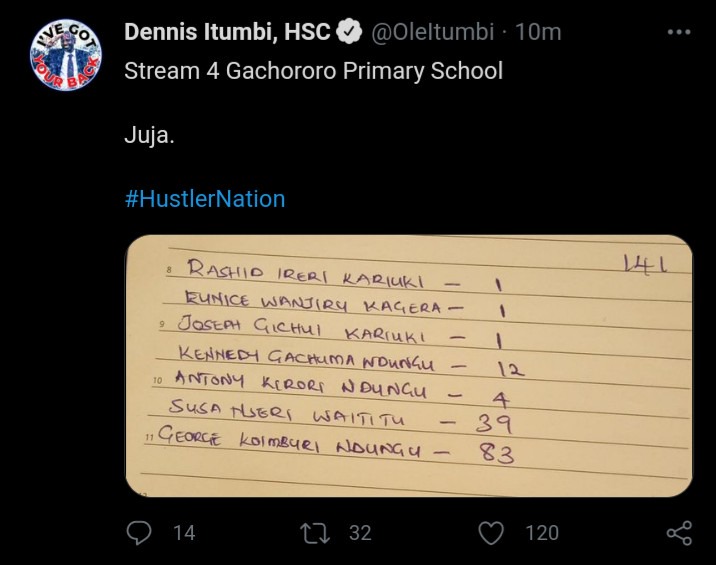 I'VE GOT
YOUR BACK
Dennis Itumbi, HSC @OleItumbi · 10m
Stream 4 Gachororo Primary School
Juja.
#HustlerNation
141
8 RASHID IRERI KARIUKI — 1
EUNICE WANJIRU KAGERA — 1
9 JOSEPH GICHUI KARIUKI — 1
KENNEDY GACHUMA NDUNGU — 12
10 ANTONY KIRORI NDUNGU — 4
SUSA NJERI WAITITU — 39
11 GEORGE KOIMBURI NDUNGU — 83
14 32 120